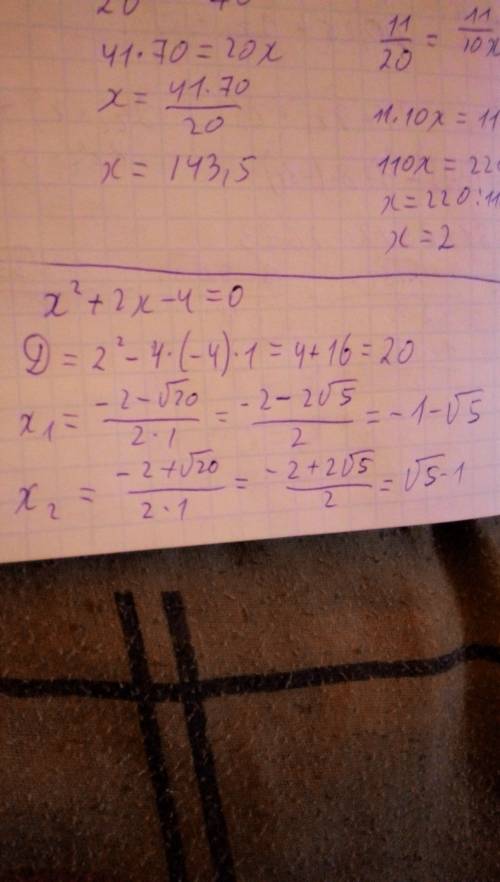 41·70=20x
x = 41·70/20
x = 143,5
11/20 = 11/10x
11·10x = 11
110x = 220
x = 220:11
x = 2
x²+2x-4=0
D = 2²-4·(-4)·1 = 4+16 = 20
x₁ = (-2-√20)/(2·1) = (-2-2√5)/2 = -1-√5
x₂ = (-2+√20)/(2·1) = (-2+2√5)/2 = √5-1